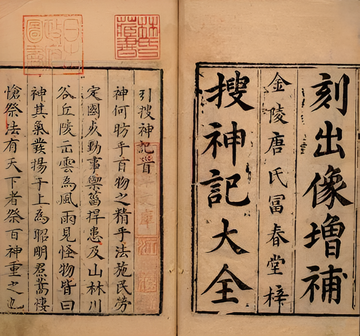 刻出像增補
金陵唐氏冨春堂梓
搜神記大全
引搜神記首
神何昉乎百物之精乎法施民勞
定國動事禦菑捍患及山林川
谷丘陵出雲為風雨見怪物皆曰
神其氣發揚于上為昭明焄蒿悽
愴祭法有天下者祭百神重之也